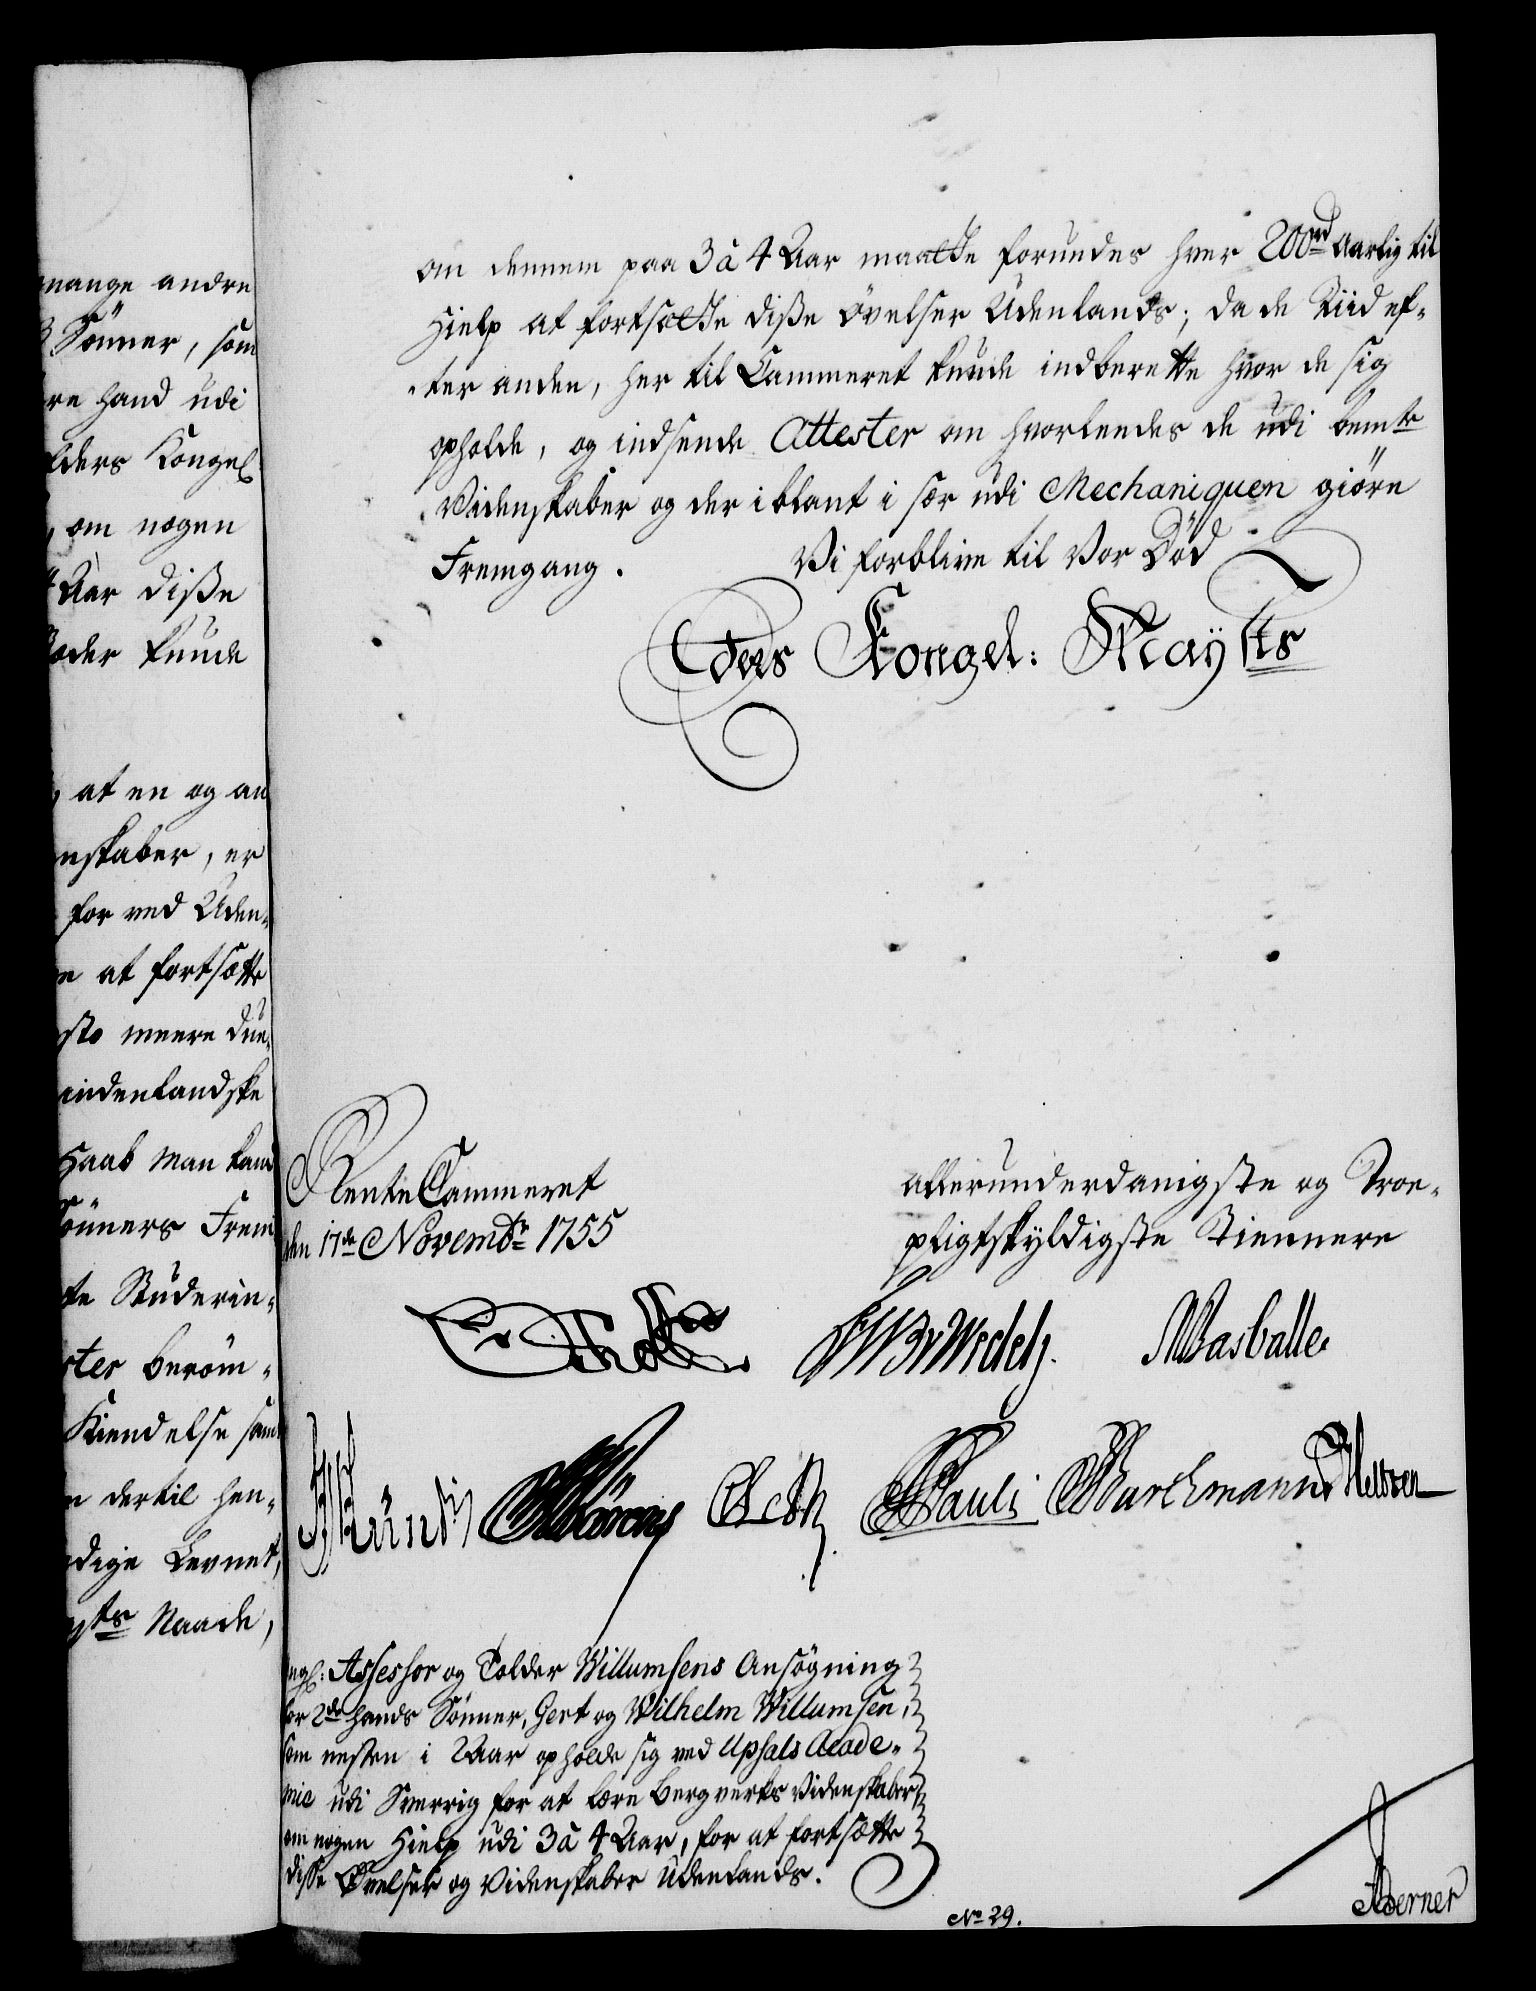 mange andre
Sönner, som
re hand udi
lders Kongel
, om nogen
4 Aar diße
øder kunde
at en og an
nskaber, er
for ved Uden-
at fortsætte
sto meere due-
indenlandske
Haab man kand
Sönners Frem
te Studerin-
ster beröm-
Kiendelse sam
dertil hen-
dige Levnet,
ysts Naade,
om dennem paa 3 à 4 Aar maatte forundes hver 200rd Aarlig til
Hielp at fortsætte diße Övelser Udenlands; da de Tiid ef-
ter anden, her til Cammeret kunde indberette hvor de sig
opholde, og indsende Attester om hvorleedes de udi bemte
Videnskaber og der iblant i sær udi Mechaniquen giöre
Fremgang. Vi forblive til Vor Död
Ders Kongel: Mayts
RenteCammeret
den 17de Novembr 1755
allerunderdanigste og Troe-
pligtskyldigste Tiennere
Holt
Wedel
Masballe
Pauli
Burchmann
Assessor og Tolder Willumsens Ansögning
for 2de hands Sönner, Gert og Wilhelm Willumsen,
som nesten i 2 Aar opholde sig ved Upsals Acade-
mie udi Sverrig for at lære Bergverks Videnskaber,
om nogen Hielp udi 3 à 4 Aar, for at fortsætte
disse Övelser og Videnskaber Udenlands.
No 29.
Aderner